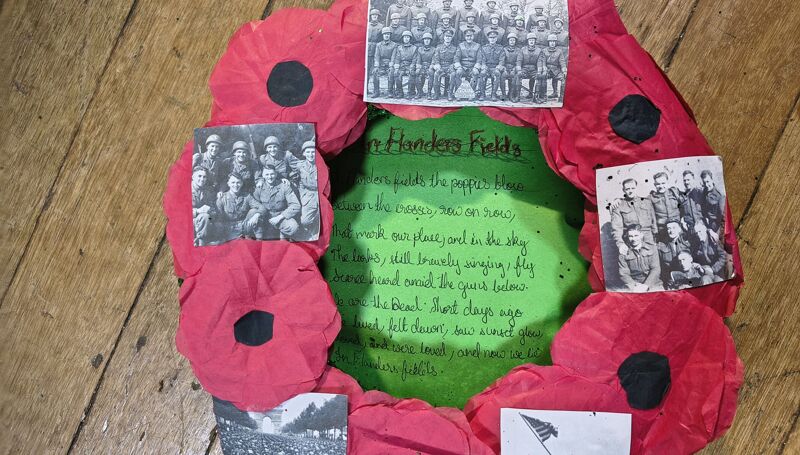 In Flanders Fields
Flanders fields the poppies blow
Between the crosses, row on row,
That mark our place, and in the sky
The larks, still bravely singing, fly
Scarce heard amid the guns below.
We are the Dead. Short days ago
lived, felt dawn, saw sunset glow,
and were loved, and now we lie
In Flanders fields.